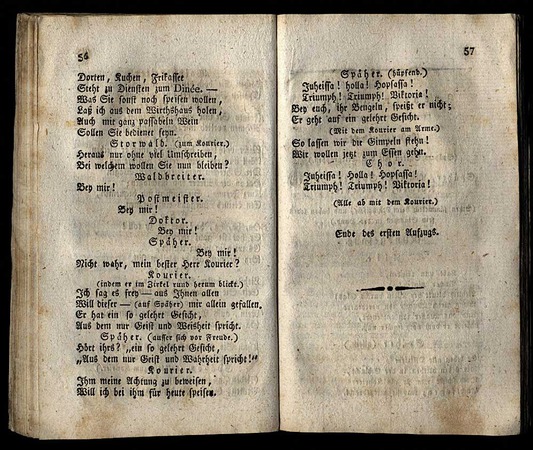 56
Dorten, Kuchen, Frikassee
Steht zu Diensten zum Dinée. —
Was Sie sonst noch speisen wollen,
Laß ich aus dem Wirthshaus holen,
Auch mit ganz passabeln Wein
Sollen Sie bedienet seyn.
Storwald. (zum Kourier.)
Heraus nur ohne viel Umschreiben,
Bei welchem wollen Sie nun bleiben?
Waldbreiter.
Bey mir!
Postmeister.
Bey mir!
Doktor.
Bey mir!
Späher.
Bey mir!
Nicht wahr, mein bester Herr Kourier?
Kourier.
(indem er im Zirkel rund herum blickt.)
Ich sag es frey — aus Ihnen allen
Will dieser — (auf Späher) mir allein gefallen.
Er hat ein so gelehrt Gesicht,
Aus dem nur Geist und Weisheit spricht.
Späher. (ausser sich vor Freude.)
Hört ihrs? „ein so gelehrt Gesicht,
„Aus dem nur Geist und Wahrheit spricht!“
Kourier.
Ihm meine Achtung zu beweisen,
Will ich bei ihm für heute speisen.
57
Späher. (hüpfend.)
Juheissa! holla! Hopsassa!
Triumph! Triumph! Viktoria!
Bey euch, ihr Bengeln, speißt er nicht;
Er geht auf ein gelehrt Gesicht.
(Mit dem Kourier am Arme.)
So lassen wir die Gimpeln stehn!
Wir wollen jezt zum Essen gehn.
Chor.
Juheissa! Holla! Hopsassa!
Triumph! Triumph! Viktoria!
(Alle ab mit dem Kourier.)
Ende des ersten Aufzugs.